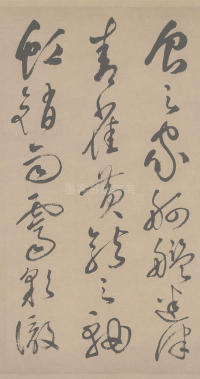 食之家舸艦迷津
青雀黃龍之軸
虹銷雨霽彩徹